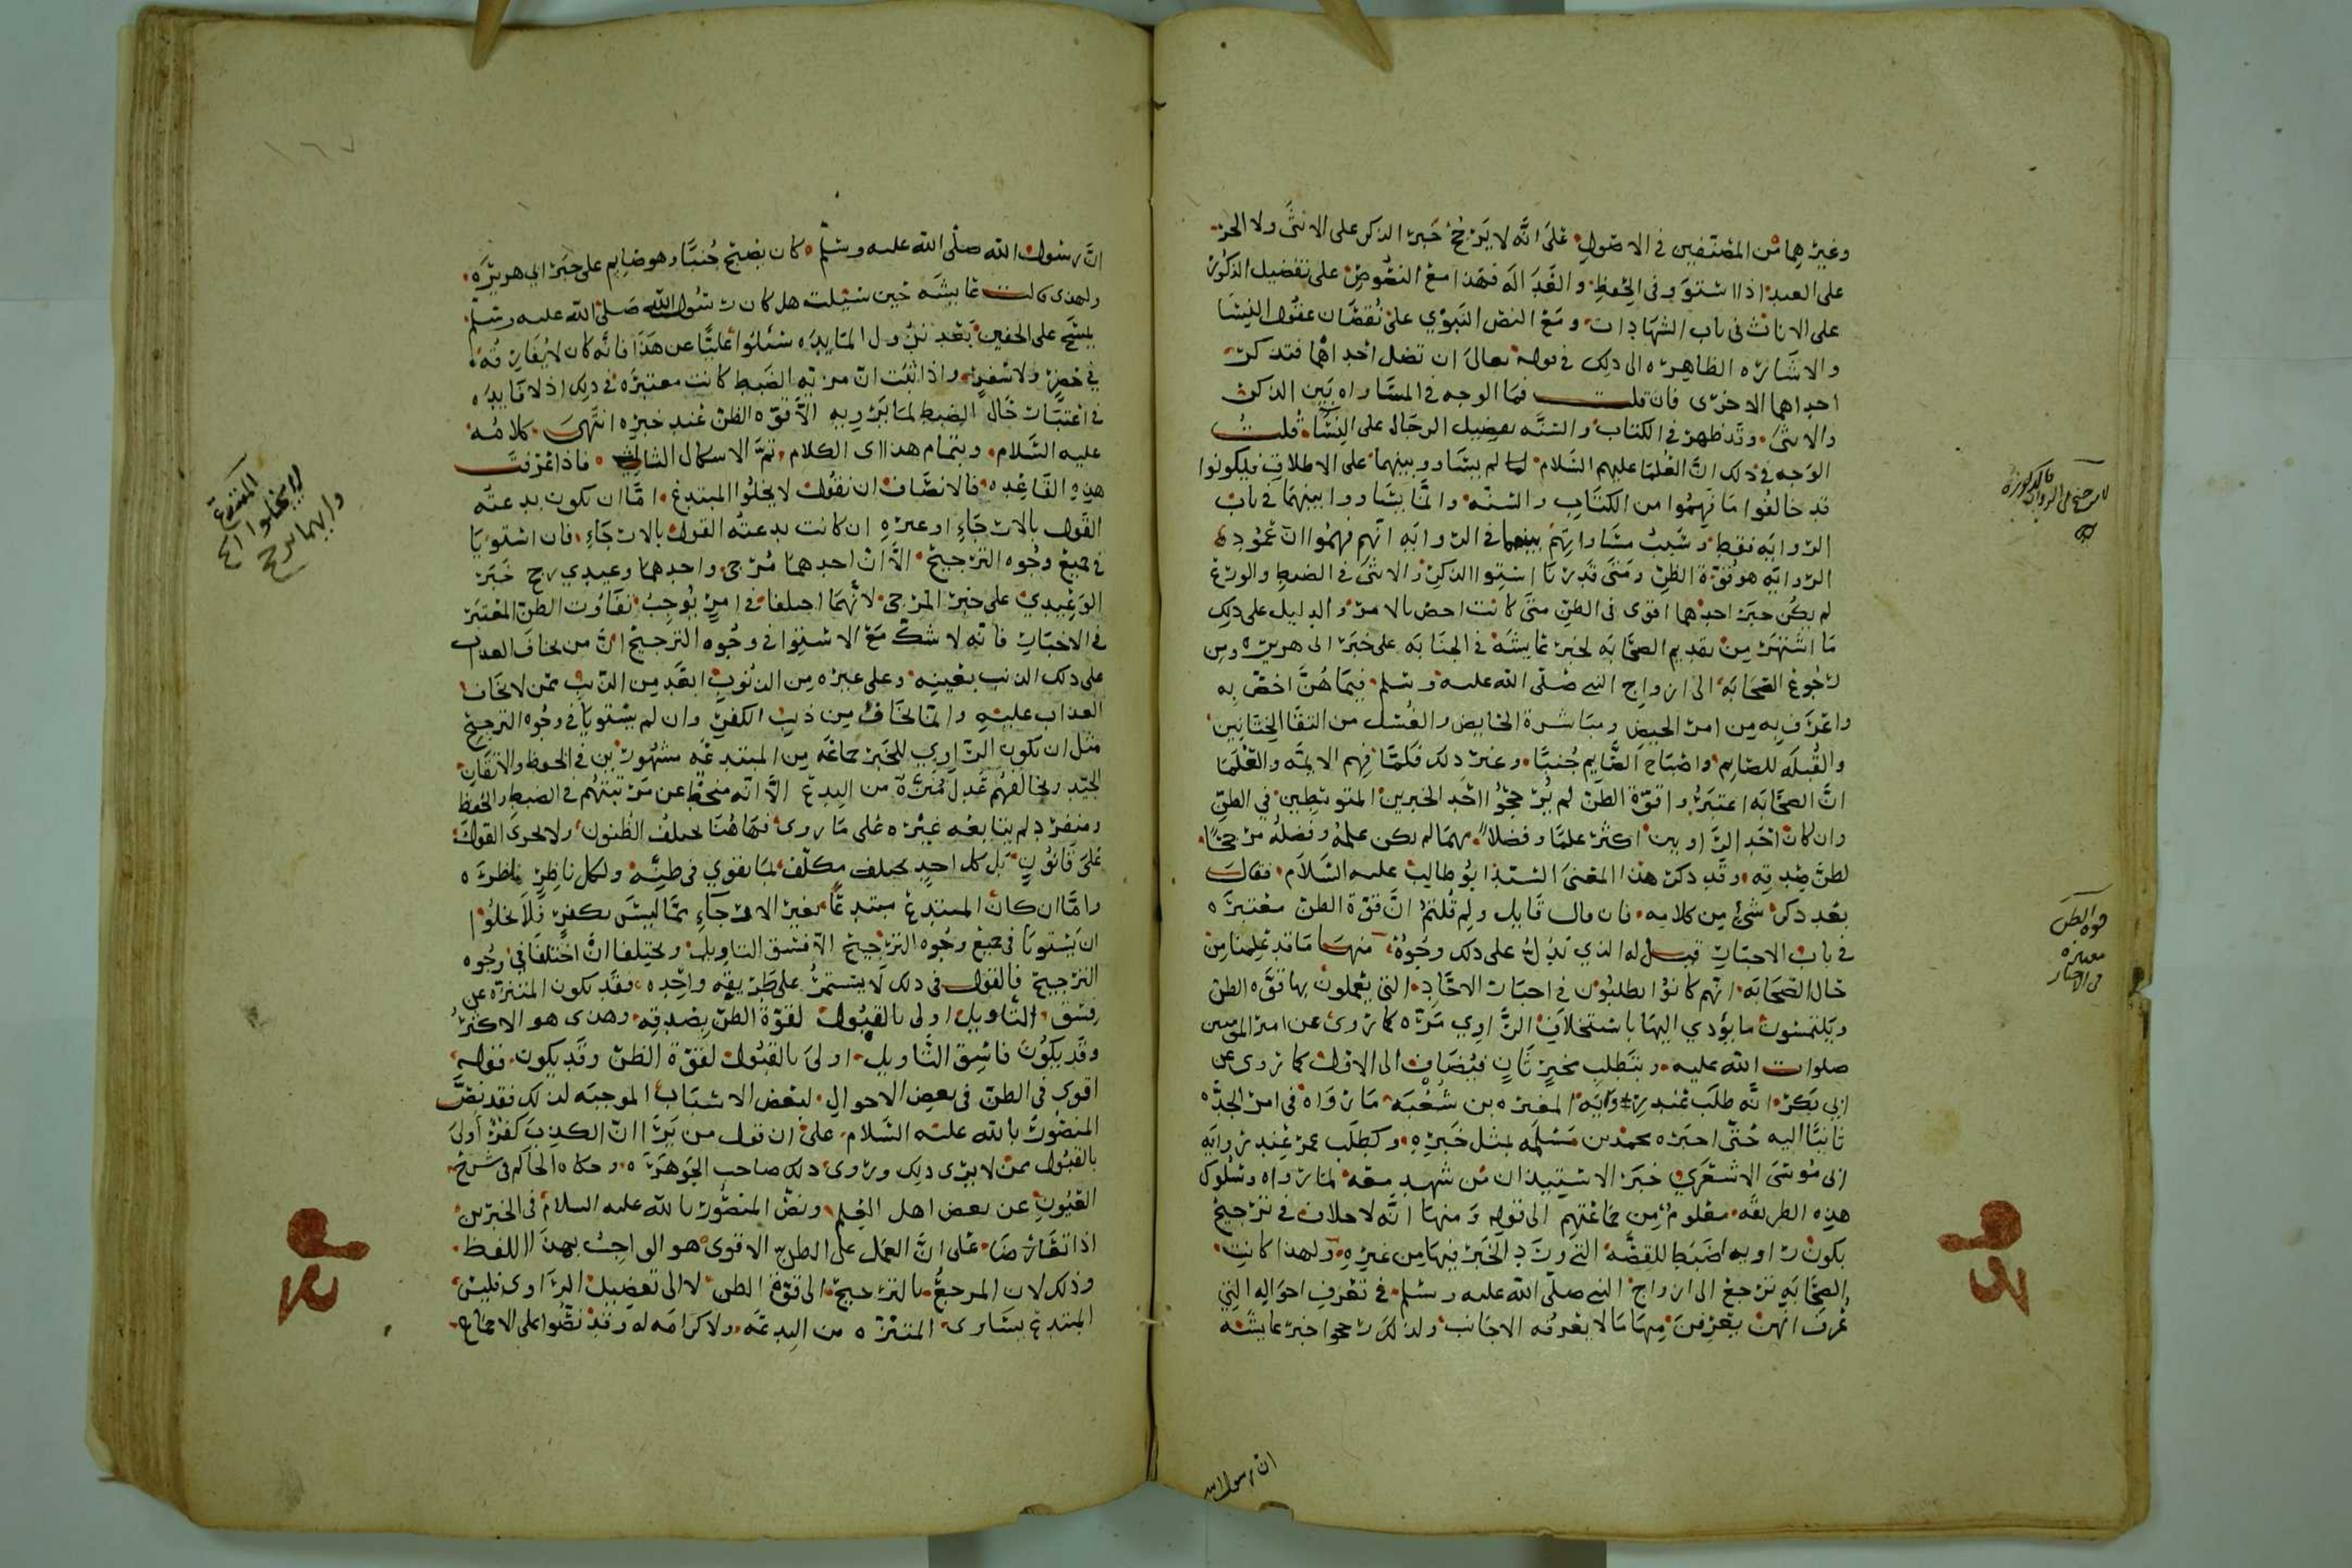 وغيرهما من المصنفين في الاصول على انه لا يرجح خبر الذكر على الانثى ولا الحر
على العبد اذا استوو في الحفظ والعدالة فهذا مع النصوص على تفضيل الذكور
على الاناث في باب الشهادات ومع النص النبوي على نقصان عقول النسا
والاشارة الظاهرة الى ذلك في قوله تعالى ان تضل احداهما فتذكر
احداهما الاخرى فان قلت فما الوجه في المساواه بين الذكر
والانثى وقد ظهر في الكتاب والسنه تفضيل الرجال على النسا قلت
الوجه في ذلك ان العلما عليهم السلام لما لم يساووا بينهما على الاطلاق فيكونوا
قد خالفوا ما فهموا من الكتاب والسنه وانما يساووا بينهما في باب
الروايه فقط وسبب مساواتهم بينهما في الروايه انهم فهموا ان عموده
الروايه هو قوة الظن ومتى قدرنا استوا الذكر والانثى في الضبط والورع
لم يكن خبر احدهما اقوى في الظن متى كانت اخص بالامر والدليل على ذلك
ما اشتهر من تقديم الصحابه لخبر عايشه في الجنابه على خبر ابي هريره ومن
رجوع الصحابه الى ازواج النبي صلى الله عليه وسلم فيما هن اخص به
واعرف به من امر الحيض ومباشرة الحايض والغسل من التقا الختانين
والقبله للصايم واصباح الصايم جنبا وغير ذلك فكلما فهم الايمه والعلما
ان الصحابه اعتبروا قوة الظن لم يرجحوا احد الخبرين المتوسطين في الظن
وان كان احد الراويين اكثر علما وفضلا مهما لم يكن علمه وفضله مرجحا
لظن صدقه وقد ذكر هذا المعنى السيد ابو طالب عليه السلام فقال
بعد ذكر شي من كلامه فان قال قايل ولم قلتم ان قوة الظن معتبره
في باب الاخبار قيل له الذي يدل على ذلك وجوه منها ما قد علمنا من
حال الصحابه انهم كانوا يطلبون في اخبار الاحاد التي يعملون بها قوه الظن
ويلتمسون ما يؤدي اليها باستحلاف الراوي مره كما روى عن امير المومنين
صلوات الله عليه وبتطلب مخبر ثان فيضاف الى الاول كما روى عن
ابي بكر انه طلب عند روايه المغيره بن شعبه ما رواه في امر الجده
ثانيا اليه حتى اخبره محمد بن مسلمه بمثل خبره وكطلب عمر عند روايه
ابي موسى الاشعري خبر الاستيذان من شهد معه لما رواه وسلوك
هذه الطريقه معلوم من جماعتهم الى قوله ومنها انه لا خلاف في ترجيح
بكون راويه اضبط للقصه التي ورد الخبر فيها من غيره ولهذا كانت
الصحابه ترجع الى ازواج النبي صلى الله عليه وسلم في تعرف احواله التي
عرف انهن يعرفن منها ما لا يعرفه الاجانب ولذلك رجحوا خبر عايشه
ان رسول الله
قوه الظن
معتبره
في الاخبار
ان رسول الله صلى الله عليه وسلم كان يصبح جنبا وهو صايم على خبر ابي هريره
ولهذى قالت عايشه حين سيلت هل كان رسول الله صلى الله عليه وسلم
يمسح على الخفين بعد نزول المايده سئلوا عليا عن هذا فانه كان لا يفارقه
في حضر ولا سفر واذا ثبت ان مزيه الضبط كانت معتبره في ذلك اذ لا فايده
في اعتبار حال الضبط لما يرويه الا قوه الظن عند خبره انتهى كلامه
عليه السلام وبتمام هذا الكلام تم الاشكال الثالث فاذا عرفت
هذه القاعده فالانصاف ان نقول لا يخلوا المبتدع اما ان تكون بدعته
القول بالارجاء او غيره ان كانت بدعته القول بالارجاء فان استويا
في جميع وجوه الترجيح الا ان احدهما مرجي واحدهما وعيدي رجح خبر
الوعيدي على خبر المرجي لانهما اختلفا في امر يوجب تفاوت الظن المعتبر
في الاخبار فانه لا شك مع الاستوا في وجوه الترجيح ان من يخاف العذاب
على ذلك الذنب بعينه وعلى غيره من الذنوب ابعد من الذنب ممن لا يخاف
العذاب عليه وانما يخاف من ذنب الكفر وان لم يستويا في وجوه الترجيح
مثل ان يكون الراوي للخبر جماعه من المبتدعه مشهورين في الحفظ والاتقان
الجيد ويخالفهم عدل منزه من البدع الا انه منحط عن مرتبتهم في الضبط والحفظ
ومنفرد لم يتابعه غيره على ما روى فهاهنا تختلف الظنون ولا يجري القول
على قانون بل كل احد مكلف بما يقوي في ظنه ولكل ناظر نظره
واما ان كان المبتدع مبتدعا بغير الارجآء مما ليس بكفر فلا يخلوا
ان يستويا في جميع وجوه الترجيح الا فسق التاويل ويختلفا ان اختلفا في وجوه
الترجيح فالقول في ذلك لا يستمر على طريقه واحده فقد يكون المتنزه عن
فسق التاويل اولى بالقبول لقوة الظن بصدقه وهذى هو الاكثر
وقد يكون فاسق التاويل اولى بالقبول لقوة الظن وقد يكون قوله
اقوى في الظن في بعض الاحوال لبعض الاسباب الموجبه لذلك فقد نص
المنصور بالله عليه السلام على ان قول من يرا ان الكذب كفر اولى
بالقبول ممن لا يرى ذلك وروى ذلك صاحب الجوهره وحكاه الحاكم في شرح
العيون عن بعض اهل العلم ونص المنصور بالله عليه السلام في الخبرين
اذا تعارضا على ان العمل على الظن الاقوى هو الواجب بهذا اللفظ
وذلك لان المرجع بالترجيح الى قوة الظن لا الى تفضيل الراوي فليس
المبتدع يساوى المتنزه من البدعه ولا كرامه له وقد نصوا على الاجماع